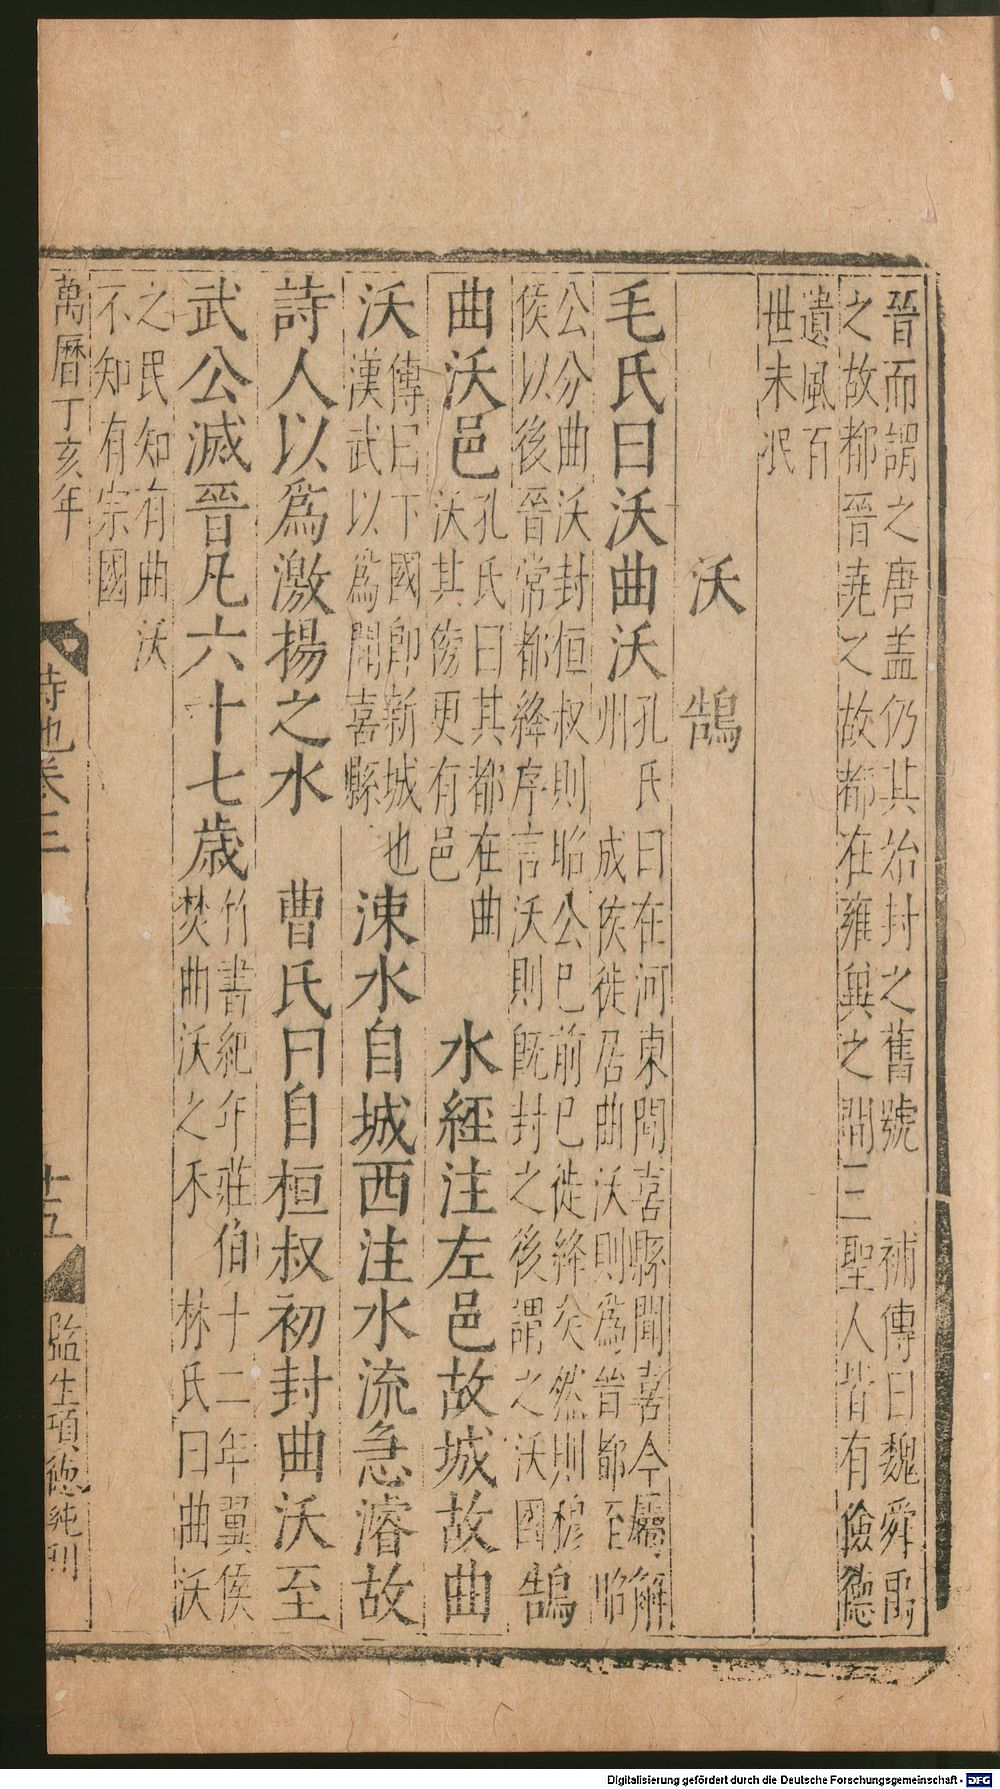 晉而謂之唐盖仍其始封之舊號　補傳曰魏舜禹
之故都晉堯之故都在雍冀之間三聖人皆有儉德
遺風百
世未泯
沃　鵠
毛氏曰沃曲沃
孔氏曰在河東聞喜縣聞喜今屬解
州　成侯徙居曲沃則爲晉都至昭
公分曲沃封桓叔則昭公已前已徙絳矣然則穆
侯以後晉常都絳序言沃則旣封之後謂之沃國
鵠
曲沃邑
孔氏曰其都在曲
沃其傍更有邑
水經注左邑故城故曲
沃
傳曰下國卽新城也
漢武以爲聞喜縣
涑水自城西注水流急濬故
詩人以爲激揚之水　曹氏曰自桓叔初封曲沃至
武公滅晉凡六十七歲
竹書紀年莊伯十二年翼侯
焚曲沃之禾　林氏曰曲沃
之民知有曲沃
不知有宗國
萬曆丁亥年
詩地卷三
十五
監生項德純刊
Digitalisierung gefördert durch die Deutsche Forschungsgemeinschaft - DFG